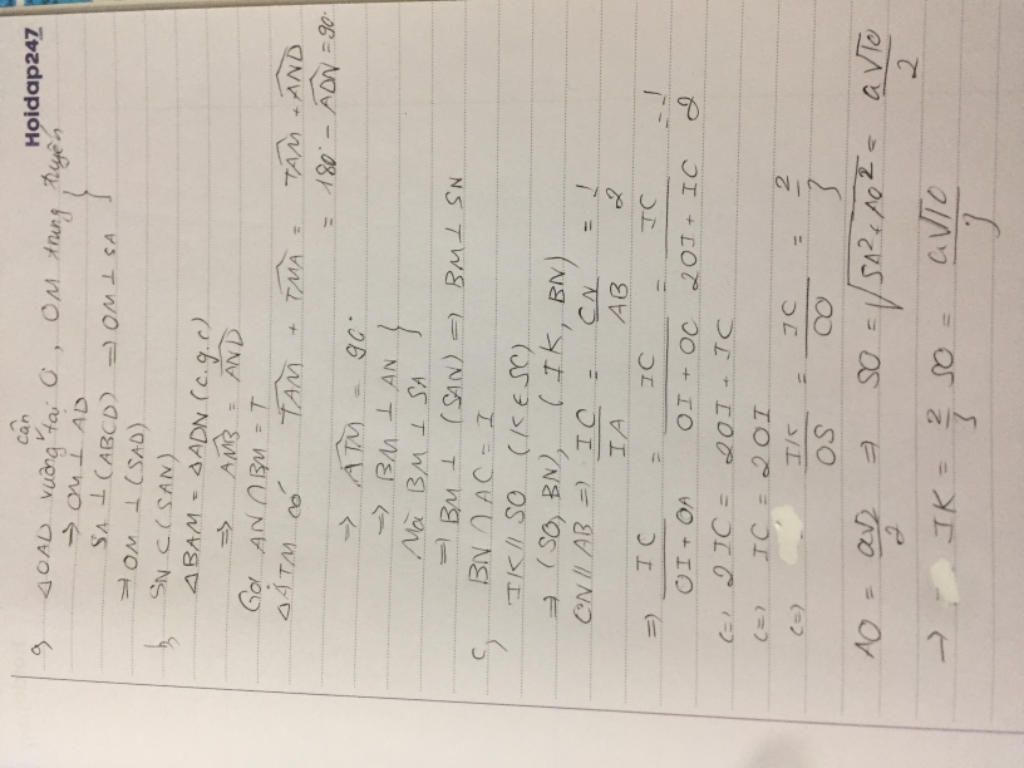 Hoidap247
a) ΔOAD vuông cân tại O, OM trung tuyến
=> OM ⊥ AD
SA ⊥ (ABCD) => OM ⊥ SA }
=> OM ⊥ (SAD)
b, SN ⊂ (SAN)
ΔBAM = ΔADN (c.g.c)
=> \widehat{AMB} = \widehat{AND}
Gọi AN ∩ BM = T
ΔATM có \widehat{TAM} + \widehat{TMA} = \widehat{TAM} + \widehat{AND}
= 180° - \widehat{ADN} = 90°
=> \widehat{ATM} = 90°
=> BM ⊥ AN
Mà BM ⊥ SA }
=> BM ⊥ (SAN) => BM ⊥ SN
c, BN ∩ AC = I
IK // SO (K ∈ SC)
=> (SO, BN), (IK, BN)
CN // AB => IC/IA = CN/AB = 1/2
=> IC/(OI + OA) = IC/(OI + OC) = IC/(2OI + IC) = 1/2
(=) 2IC = 2OI + IC
(=) IC = 2OI
(=) IK/OS = IC/CO = 2/3
AO = a√2/2 => SO = √(SA² + AO²) = a√10/2
-> IK = 2/3 SO = a√10/3